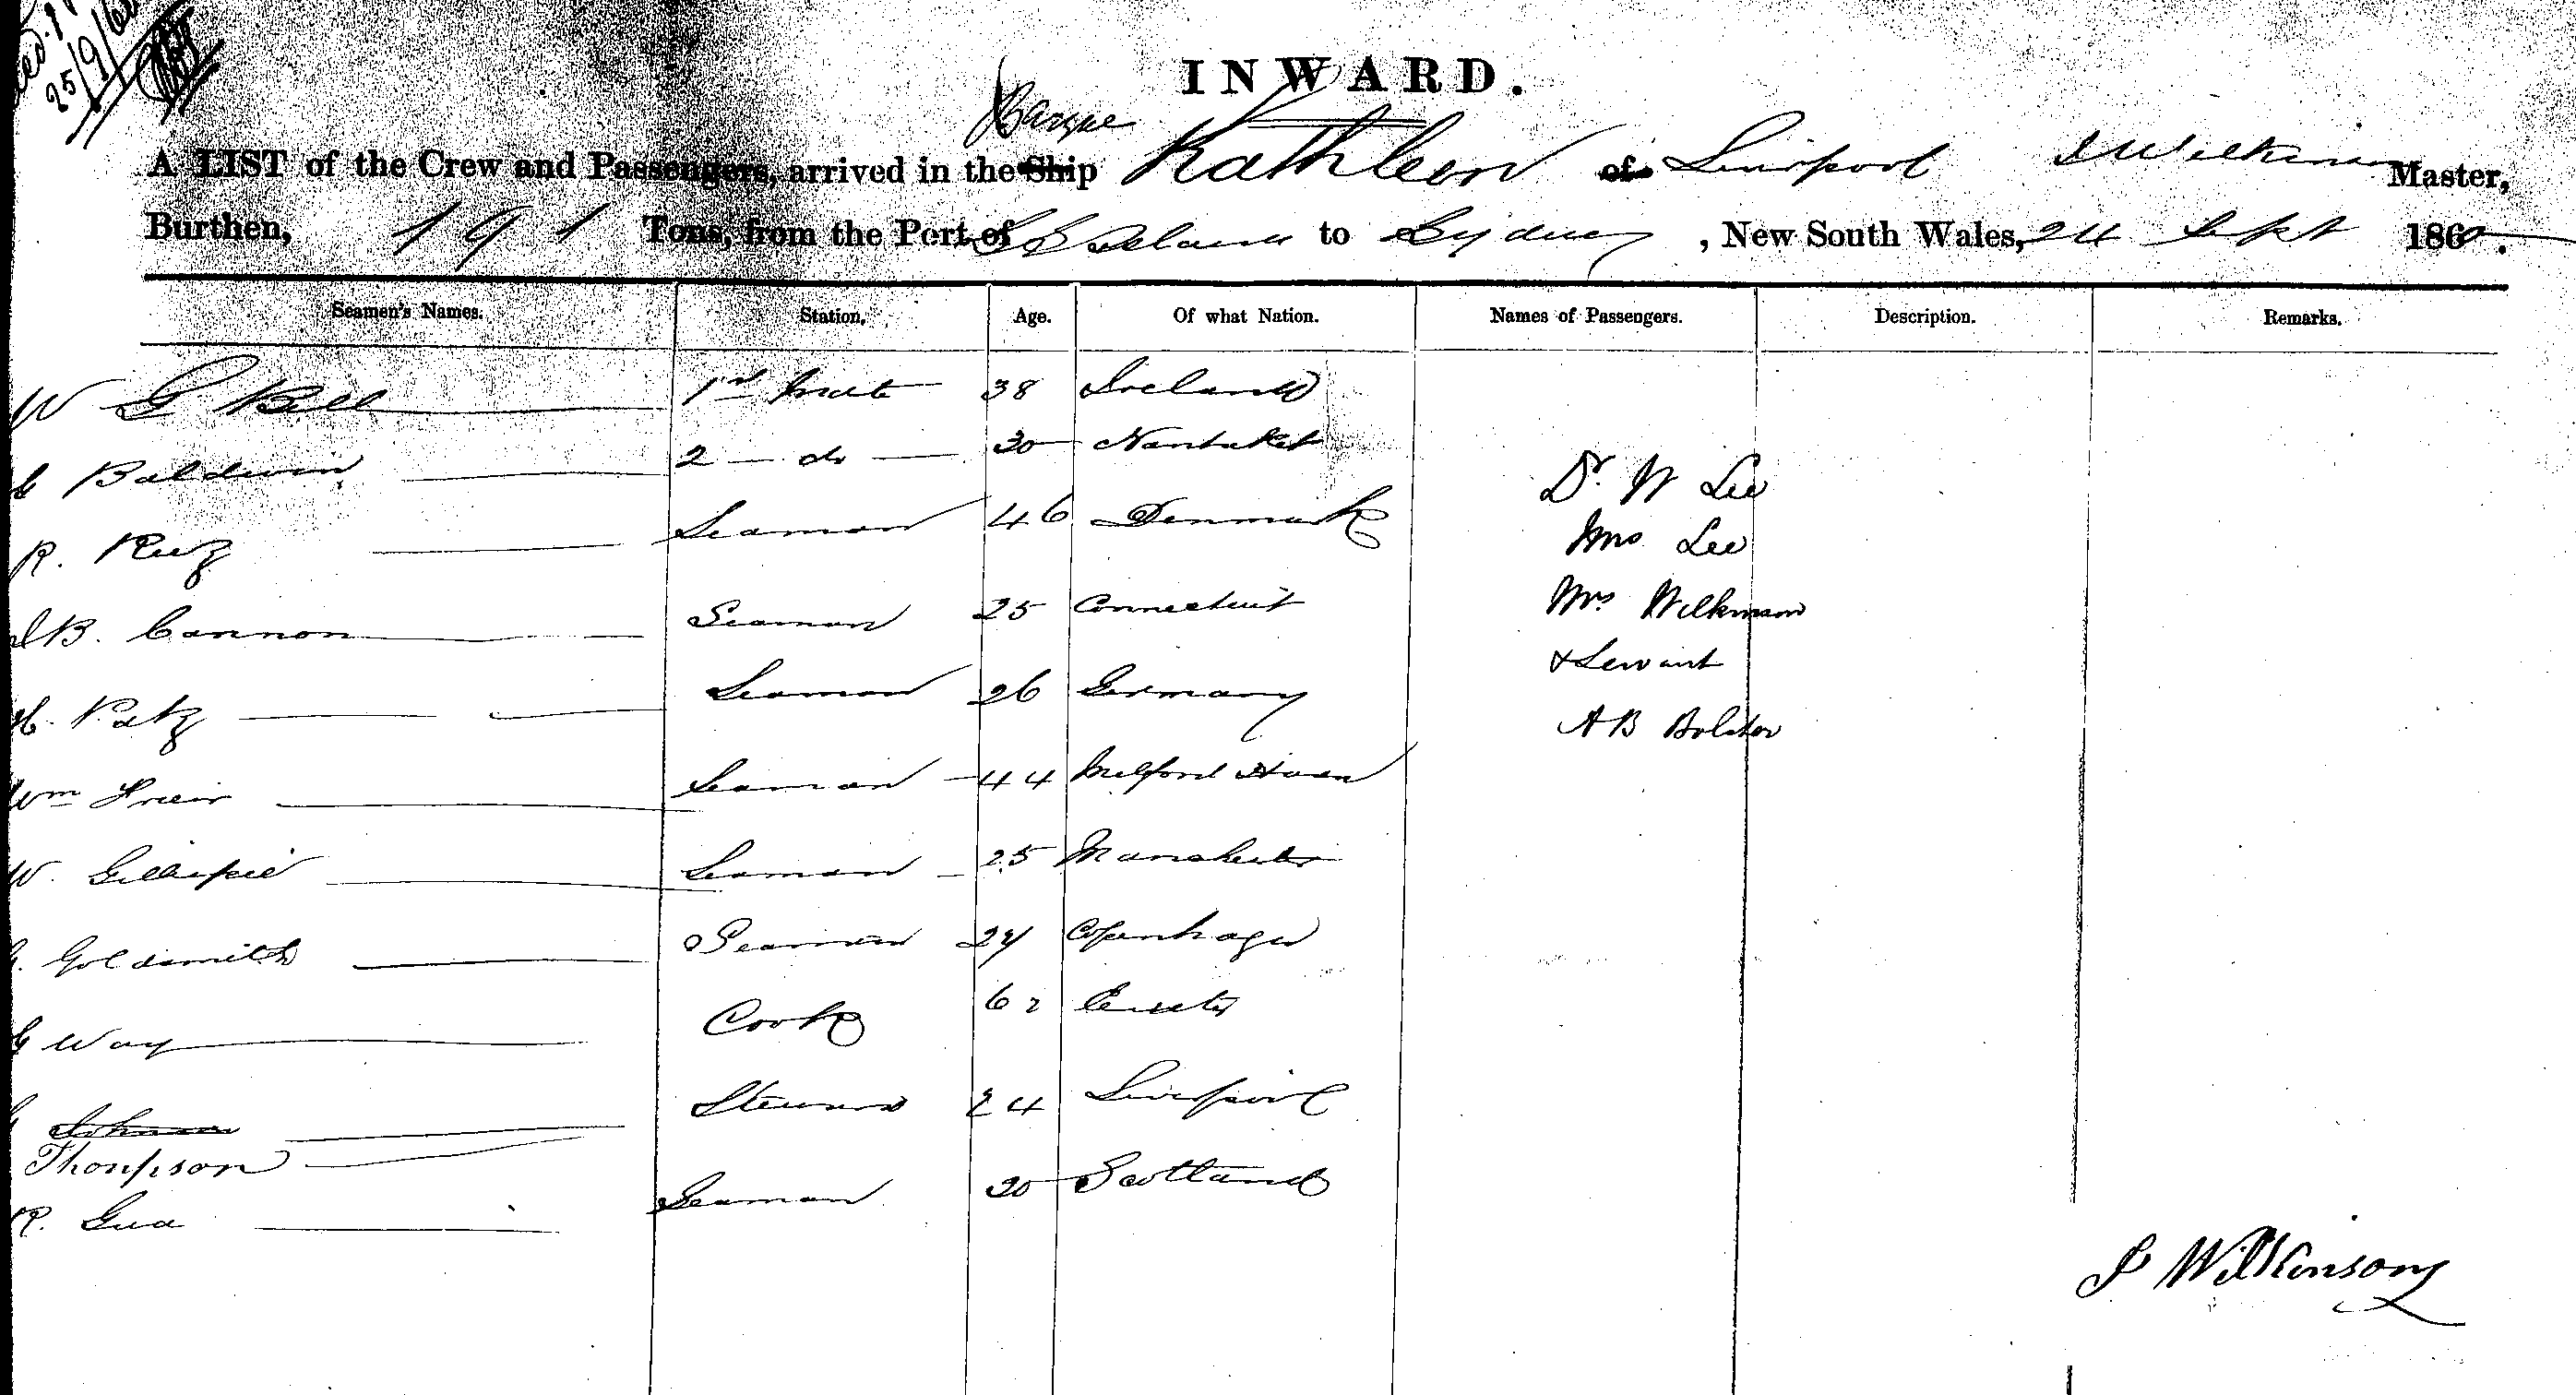 25/9/60
INWARD.
Barque
A LIST of the Crew and Passengers, arrived in the Ship Kathleen of Liverpool J Wilkinson Master,
Burthen, 191 Tons, from the Port of S S Island to Sydney, New South Wales, 24 Sept 1860.
Seamen's Names. Station. Age. Of what Nation. Names of Passengers. Description. Remarks.
W G Bell 1st Mate 38 Ireland
Baldwin 2 - do - 30 Nantuket
Dr. W Lee
R. Seaman 46 Denmark
Mrs Lee
J B. Cannon Seaman 25 Connecticut
Mrs Wilkinson
& Servant
H. Patz Seaman 26 Germany
A B Bolster
Wm Seaman 44 Milford Haven
W. Gillispie Seaman 25 Manchester
G. Goldsmith Seaman 24 Copenhagen
G Way Cook 62 Exeter
G Johnson Steward 24 Liverpool
Thompson
R. Gua Seaman 30 Scotland
J Wilkinson